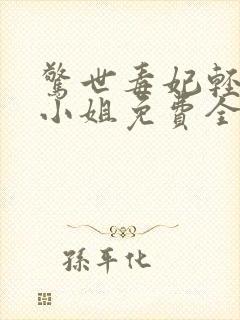 驚世毒妃輕
小姐免費全
孫平化